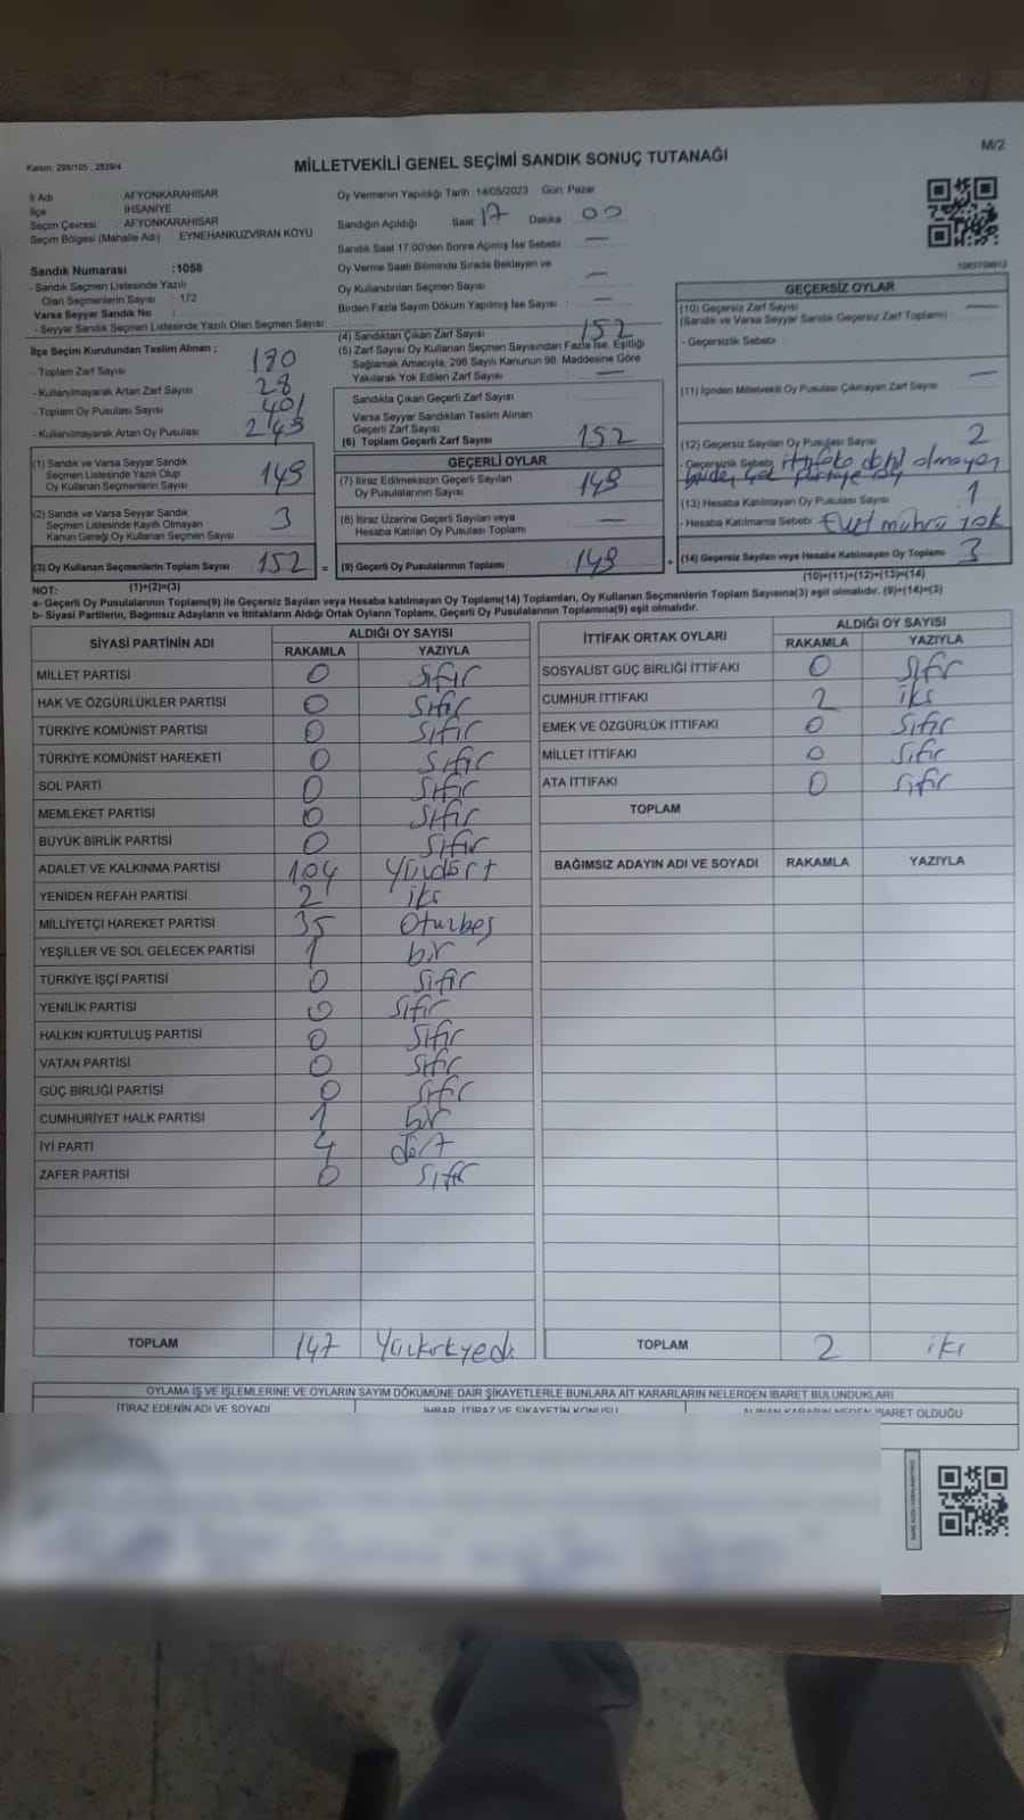 Kanun: 298/105 , 2839/4
MİLLETVEKİLİ GENEL SEÇİMİ SANDIK SONUÇ TUTANAĞI
M/2
İl Adı AFYONKARAHİSAR
İlçe İHSANİYE
Seçim Çevresi AFYONKARAHİSAR
Seçim Bölgesi (Mahalle Adı) EYNEHANKUZVİRAN KÖYÜ
Sandık Numarası :1058
- Sandık Seçmen Listesinde Yazılı
Olan Seçmenlerin Sayısı : 172
Varsa Seyyar Sandık No
- Seyyar Sandık Seçmen Listesinde Yazılı Olan Seçmen Sayısı:
İlçe Seçim Kurulundan Teslim Alınan ;
- Toplam Zarf Sayısı 180
- Kullanılmayarak Artan Zarf Sayısı 28
- Toplam Oy Pusulası Sayısı 401
- Kullanılmayarak Artan Oy Pusulası 249
(1) Sandık ve Varsa Seyyar Sandık
Seçmen Listesinde Yazılı Olup
Oy Kullanan Seçmenlerin Sayısı 149
(2) Sandık ve Varsa Seyyar Sandık
Seçmen Listesinde Kayıtlı Olmayan
Kanun Gereği Oy Kullanan Seçmen Sayısı 3
(3) Oy Kullanan Seçmenlerin Toplam Sayısı 152 =
Oy Vermenin Yapıldığı Tarih :14/05/2023 Gün: Pazar
Sandığın Açıldığı Saat 17 Dakika 00
Sandık Saat 17.00'den Sonra Açılmış İse Sebebi —
Oy Verme Saati Bitiminde Sırada Bekleyen ve
Oy Kullandırılan Seçmen Sayısı —
Birden Fazla Sayım Döküm Yapılmış İse Sayısı —
(4) Sandıktan Çıkan Zarf Sayısı 152
(5) Zarf Sayısı Oy Kullanan Seçmen Sayısından Fazla İse, Eşitliği
Sağlamak Amacıyla, 298 Sayılı Kanunun 98. Maddesine Göre
Yakılarak Yok Edilen Zarf Sayısı —
Sandıkta Çıkan Geçerli Zarf Sayısı
Varsa Seyyar Sandıktan Teslim Alınan
Geçerli Zarf Sayısı
(6) Toplam Geçerli Zarf Sayısı 152
GEÇERLİ OYLAR
(7) İtiraz Edilmeksizin Geçerli Sayılan
Oy Pusulalarının Sayısı 149
(8) İtiraz Üzerine Geçerli Sayılan veya
Hesaba Katılan Oy Pusulası Toplamı —
(9) Geçerli Oy Pusulalarının Toplamı 149 +
GEÇERSİZ OYLAR
(10) Geçersiz Zarf Sayısı —
(Sandık ve Varsa Seyyar Sandık Geçersiz Zarf Toplamı)
- Geçersizlik Sebebi :
(11) İçinden Milletvekili Oy Pusulası Çıkmayan Zarf Sayısı —
(12) Geçersiz Sayılan Oy Pusulası Sayısı 2
- Geçersizlik Sebebi ittifaka dahil olmayan
birden çok partiye oy
(13) Hesaba Katılmayan Oy Pusulası Sayısı 1
- Hesaba Katılmama Sebebi Evet mührü yok
(14) Geçersiz Sayılan veya Hesaba Katılmayan Oy Toplamı 3
NOT: (1)+(2)=(3)
(10)+(11)+(12)+(13)=(14)
a- Geçerli Oy Pusulalarının Toplamı(9) ile Geçersiz Sayılan veya Hesaba katılmayan Oy Toplamı(14) Toplamları, Oy Kullanan Seçmenlerin Toplam Sayısına(3) eşit olmalıdır. (9)+(14)=(3)
b- Siyasi Partilerin, Bağımsız Adayların ve İttifakların Aldığı Ortak Oyların Toplamı, Geçerli Oy Pusulalarının Toplamına(9) eşit olmalıdır.
SİYASİ PARTİNİN ADI
ALDIĞI OY SAYISI
RAKAMLA YAZIYLA
MİLLET PARTİSİ 0 sıfır
HAK VE ÖZGÜRLÜKLER PARTİSİ 0 sıfır
TÜRKİYE KOMÜNİST PARTİSİ 0 sıfır
TÜRKİYE KOMÜNİST HAREKETİ 0 sıfır
SOL PARTİ 0 sıfır
MEMLEKET PARTİSİ 0 sıfır
BÜYÜK BİRLİK PARTİSİ 0 sıfır
ADALET VE KALKINMA PARTİSİ 104 Yüzdört
YENİDEN REFAH PARTİSİ 2 iki
MİLLİYETÇİ HAREKET PARTİSİ 35 Oturbeş
YEŞİLLER VE SOL GELECEK PARTİSİ 1 bir
TÜRKİYE İŞÇİ PARTİSİ 0 sıfır
YENİLİK PARTİSİ 0 sıfır
HALKIN KURTULUŞ PARTİSİ 0 sıfır
VATAN PARTİSİ 0 sıfır
GÜÇ BİRLİĞİ PARTİSİ 0 sıfır
CUMHURİYET HALK PARTİSİ 1 bir
İYİ PARTİ 4 dört
ZAFER PARTİSİ 0 sıfır
TOPLAM 147 Yüzkırkyedi
İTTİFAK ORTAK OYLARI
ALDIĞI OY SAYISI
RAKAMLA YAZIYLA
SOSYALİST GÜÇ BİRLİĞİ İTTİFAKI 0 sıfır
CUMHUR İTTİFAKI 2 iki
EMEK VE ÖZGÜRLÜK İTTİFAKI 0 sıfır
MİLLET İTTİFAKI 0 sıfır
ATA İTTİFAKI 0 sıfır
TOPLAM
BAĞIMSIZ ADAYIN ADI VE SOYADI RAKAMLA YAZIYLA
TOPLAM 2 iki
OYLAMA İŞ VE İŞLEMLERİNE VE OYLARIN SAYIM DÖKÜMÜNE DAİR ŞİKAYETLERLE BUNLARA AİT KARARLARIN NELERDEN İBARET BULUNDUKLARI
İTİRAZ EDENİN ADI VE SOYADI İHBAR, İTİRAZ VE ŞİKAYETİN KONUSU ALINAN KARARIN NEDEN İBARET OLDUĞU